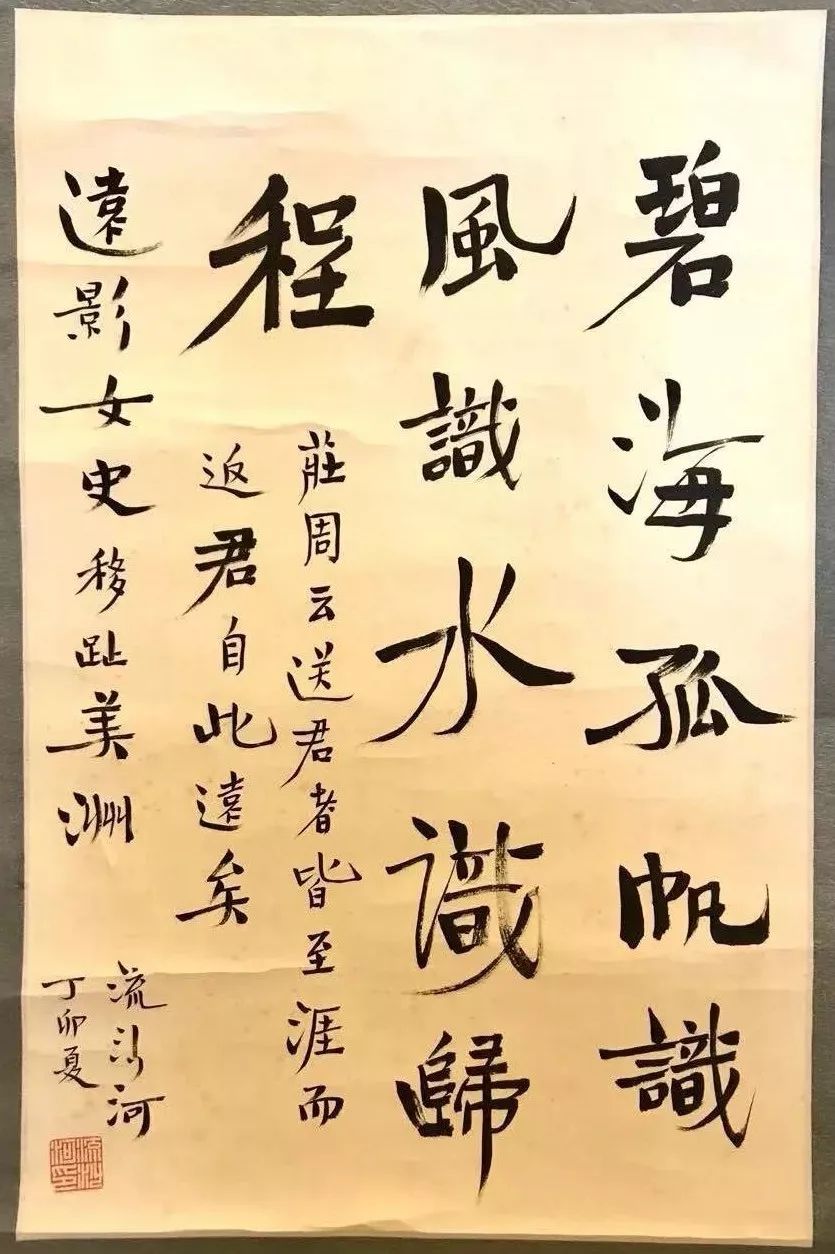 碧海孤帆識
風識水識歸
程
莊周云送君者皆至涯而
返君自此遠矣
遠影女史移趾美洲
流沙河
丁卯夏
流沙河印